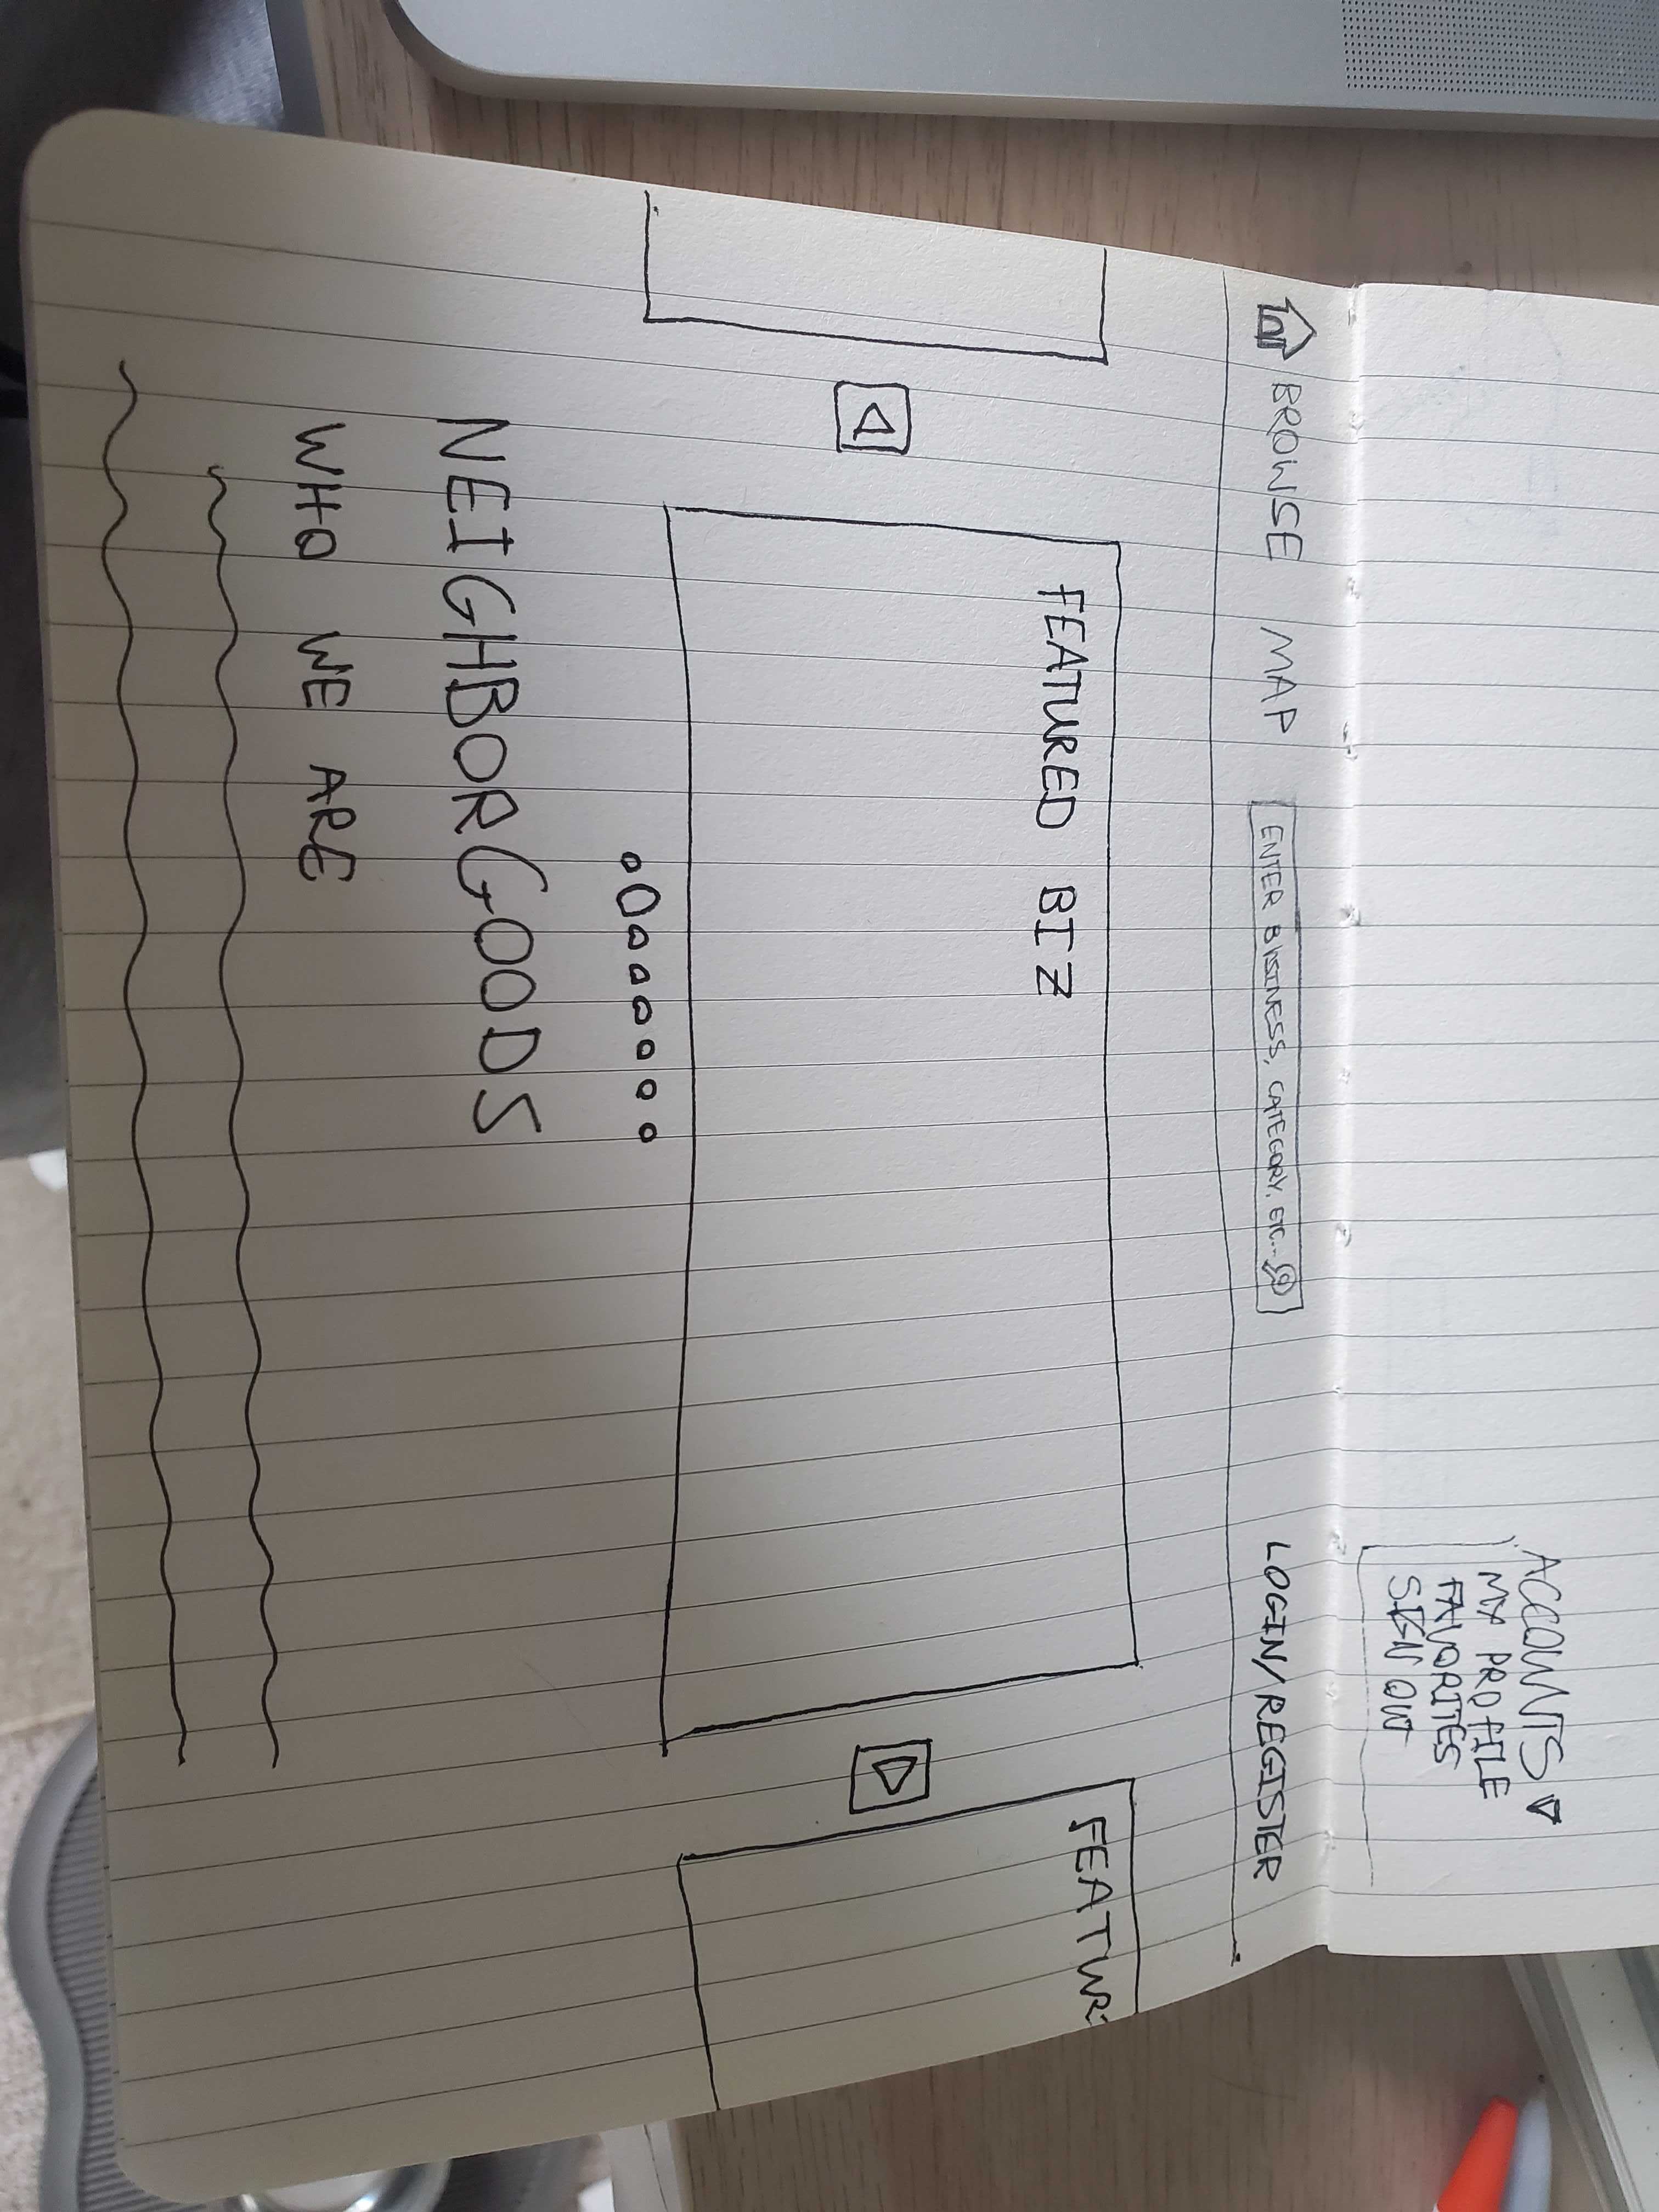 ACCOUNTS
MY PROFILE
FAVORITES
SIGN OUT
BROWSE MAP ENTER BUSINESS, CATEGORY, ETC... LOGIN/REGISTER
FEATURED BIZ
FEATUR
NEIGHBORGOODS
WHO WE ARE